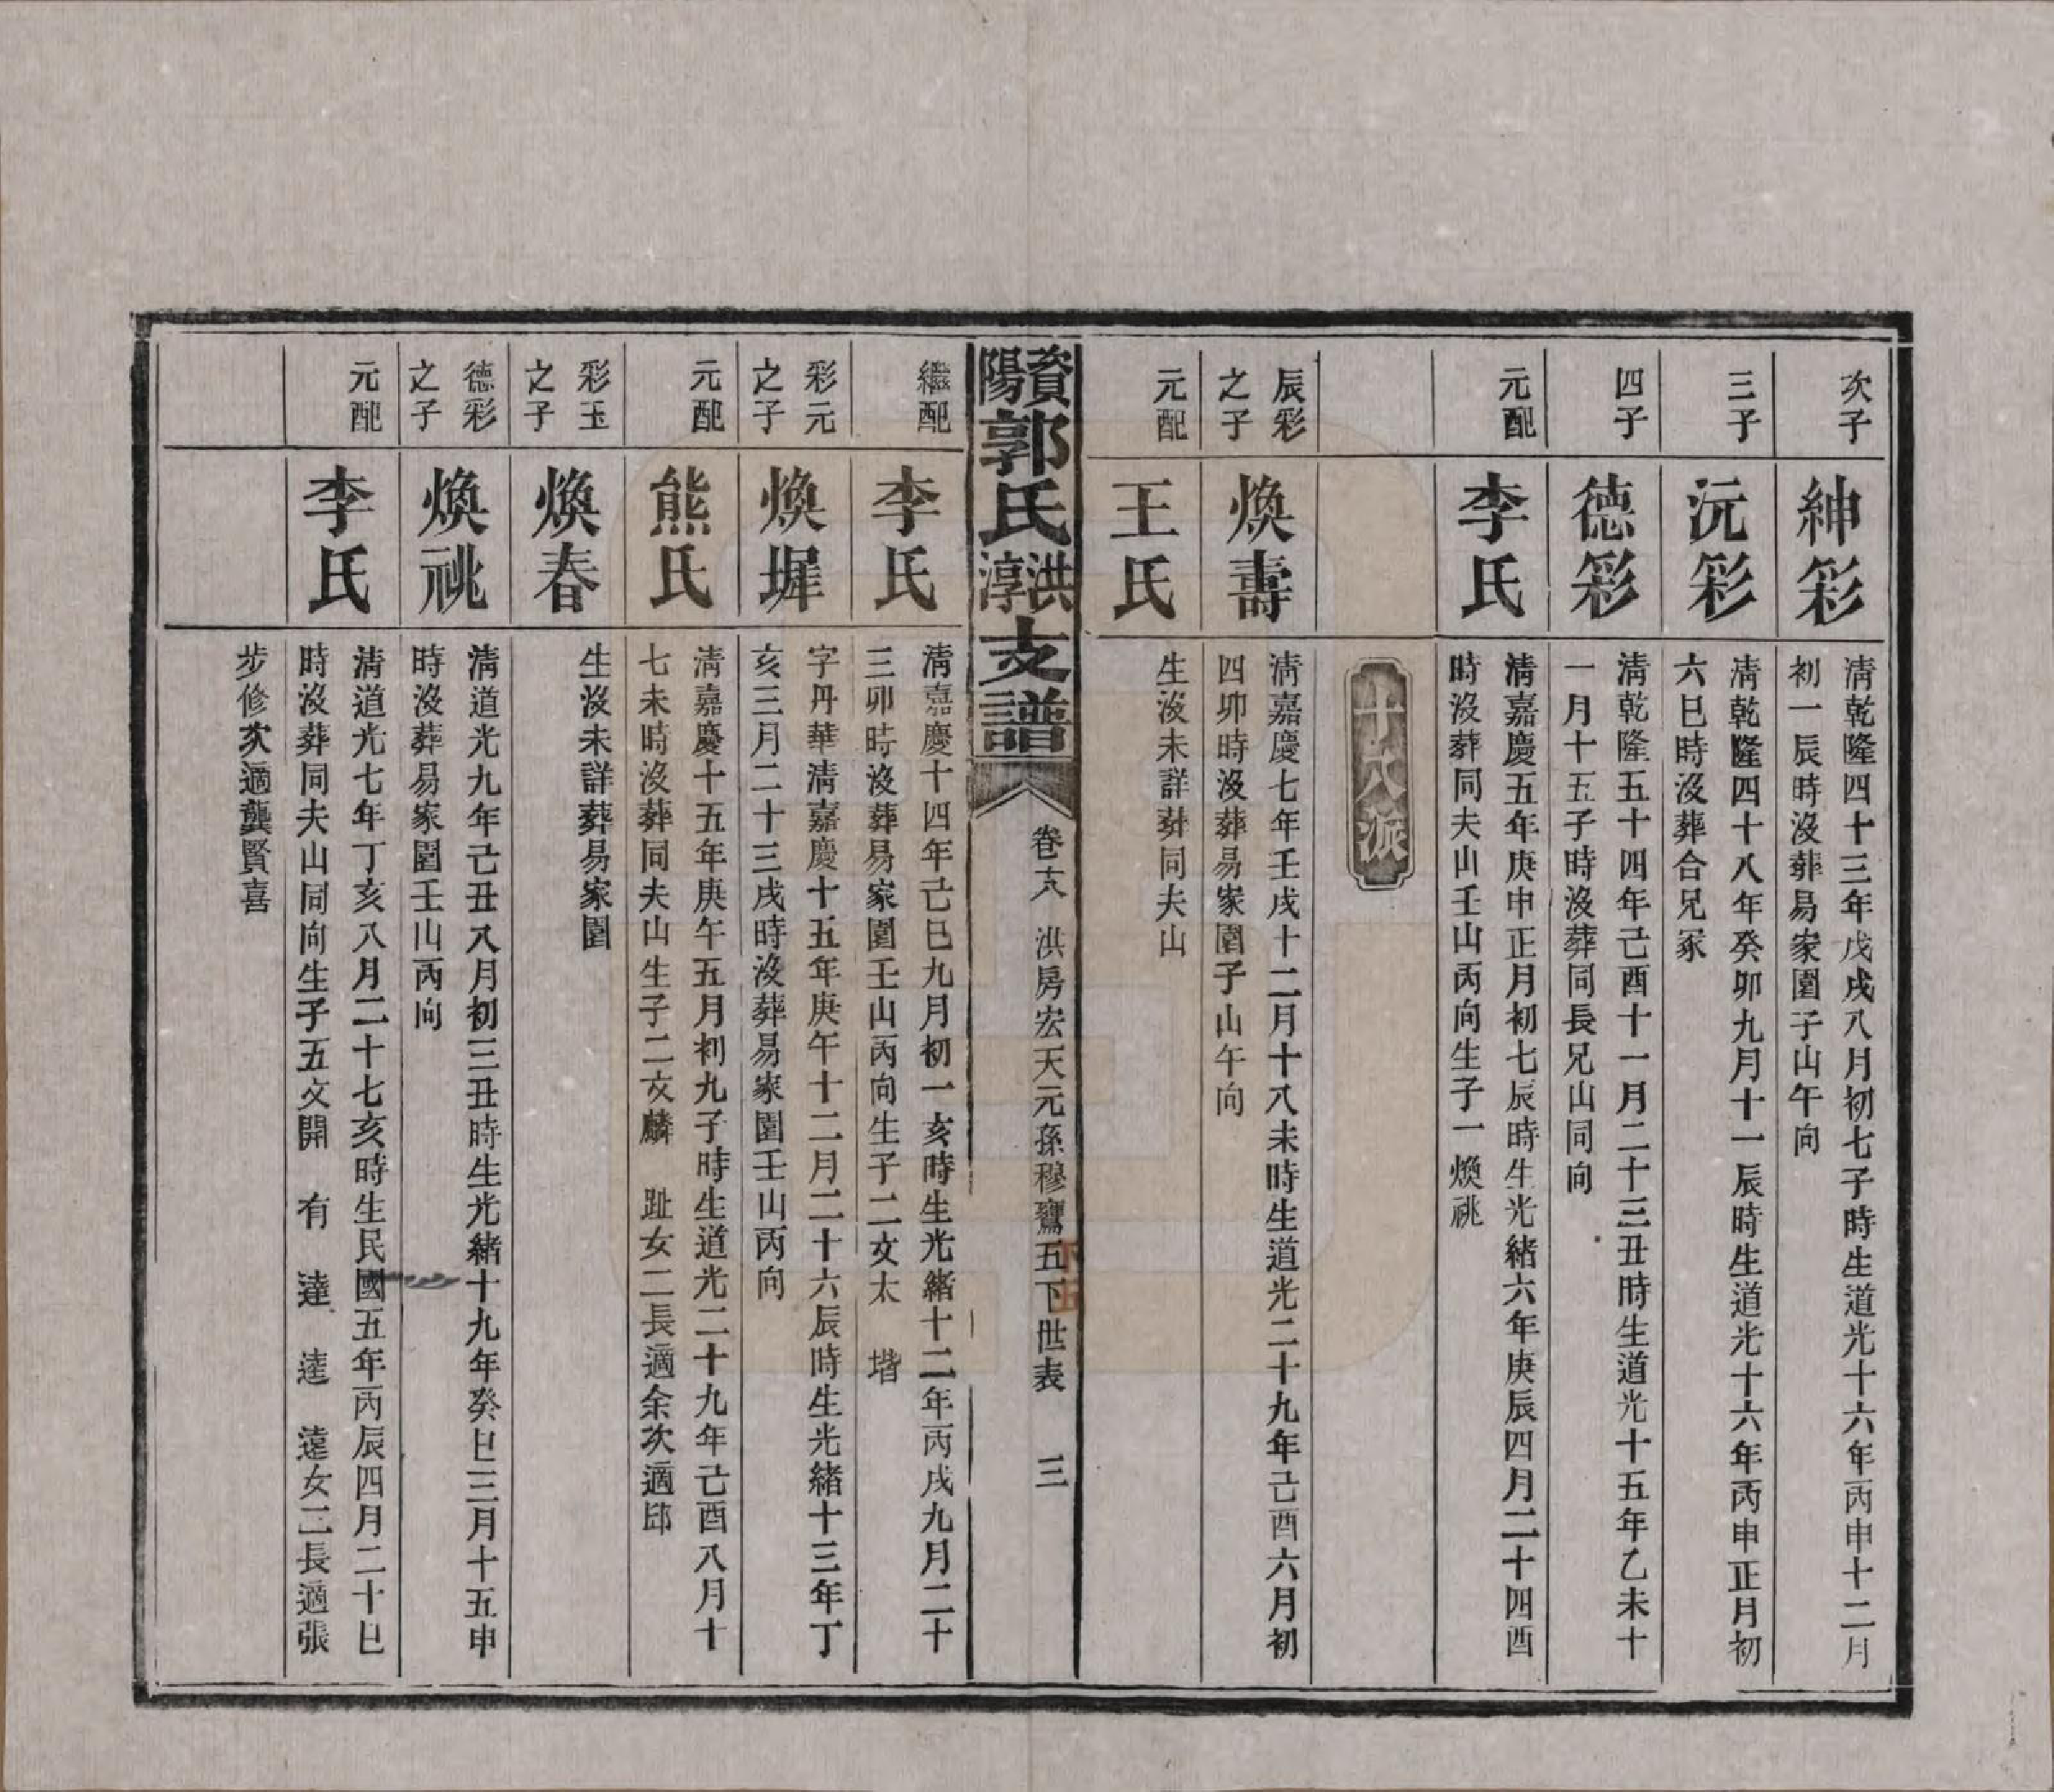 次子
紳彩
清乾隆四十三年戊戌八月初七子時生道光十六年丙申十二月
初一辰時沒葬易家園子山午向
三子
沅彩
清乾隆四十八年癸卯九月十一辰時生道光十六年丙申正月初
六巳時沒葬合兄冢
四子
德彩
清乾隆五十四年己酉十一月二十三丑時生道光十五年乙未十
一月十五子時沒葬同長兄山同向
元配
李氏
清嘉慶五年庚申正月初七辰時生光緒六年庚辰四月二十四酉
時沒葬同夫山壬山丙向生子一煥祧
十八派
辰彩
之子
煥壽
清嘉慶七年壬戌十二月十八未時生道光二十九年己酉六月初
四卯時沒葬易家園子山午向
元配
王氏
生沒未詳葬同夫山
資陽郭氏洪淳支譜
卷十八 洪房宏天元孫穆鸞五下世表 三
繼配
李氏
清嘉慶十四年己巳九月初一亥時生光緒十二年丙戌九月二十
三卯時沒葬易家園壬山丙向生子二文太 堦
彩元
之子
煥墀
字丹華清嘉慶十五年庚午十二月二十六辰時生光緒十三年丁
亥三月二十三戌時沒葬易家園壬山丙向
元配
熊氏
清嘉慶十五年庚午五月初九子時生道光二十九年己酉八月十
七未時沒葬同夫山生子二文麟 趾女二長適余次適邱
彩玉
之子
煥春
生沒未詳葬易家園
德彩
之子
煥祧
清道光九年己丑八月初三丑時生光緒十九年癸巳三月十五申
時沒葬易家園壬山丙向
元配
李氏
清道光七年丁亥八月二十七亥時生民國五年丙辰四月二十巳
時沒葬同夫山同向生子五文開 有 達 逵 遠女二長適張
步修次適龔賢喜